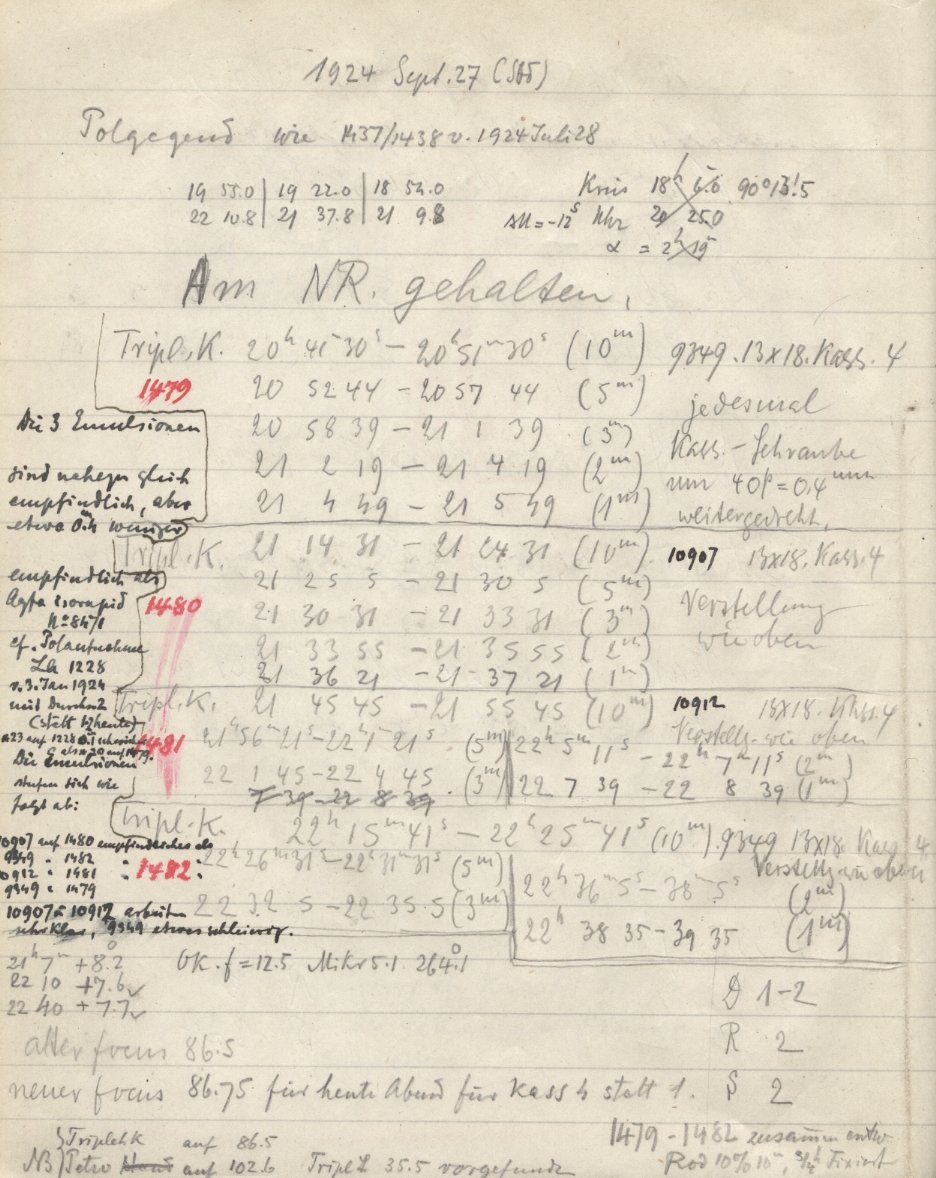 1924 Sept. 27 (Sa)
Polgegend wie 1437/1438 v. 1924 Juli 28
19 55.0 | 19 22.0 | 18 54.0
22 10.8 | 21 37.8 | 21 9.8
Kreis 18h 90° 13!5
ΔU = -12s Uhr 20 25.0
α = 2h 19m
Am NR. gehalten.
Tripl. K. 20h 41m 30s – 20h 51m 30s (10m) 9349. 13x18. Kass. 4
1479
20 52 44 – 20 57 44 (5m) jedesmal
20 58 39 – 21 1 39 (3m) Kass.-Schraube
21 2 19 – 21 4 19 (2m) um 40p = 0.4mm
21 4 49 – 21 5 49 (1m) weitergedreht.
Die 3 Emulsionen
sind nahezu gleich
empfindlich, aber
etwa weniger
empfindlich als
Agfa Isorapid
No 8471
cf. Polaufnahme
LA 1228
v. 3. Jan 1924
mit
(statt heute)
Die Emulsionen
stufen sich wie
folgt ab:
Tripl. K. 21 14 31 – 21 24 31 (10m) 10907 13x18. Kass. 4
1480
21 25 5 – 21 30 5 (5m) Verstellung
21 30 31 – 21 33 31 (3m) wie oben
21 33 55 – 21 35 55 (2m)
21 36 21 – 21 37 21 (1m)
Tripl. K. 21 45 45 – 21 55 45 (10m) 10912 13x18. Kass. 4
1481
Verstellg. wie oben
21h 56m 21s – 22h 1m 21s (5m) 22h 5m 11s – 22h 7m 11s (2m)
22 1 45 – 22 4 45 (3m) 22 7 39 – 22 8 39 (1m)
7 39 – 22 8 39
Tripl. K. 22h 15m 41s – 22h 25m 41s (10m) 9349 13x18. Kass. 4
1482
Verstellg. wie oben
22h 26m 31s – 22h 31m 31s (5m) 22h 36m 5s – 38m 5s (2m)
22 32 5 – 22 35 5 (3m) 22h 38 35 – 39 35 (1m)
10907 auf 1480 empfindlicher als
9349 " 1482 " :
10912 " 1481 " :
9349 " 1479
10907 u 10912 arbeiten
sehr klar, 9349 etwas schleierig.
21h 7m +8.2°
22 10 +7.6
22 40 +7.7
OK. f = 12.5 Mikr 5.1 264.1°
D 1-2
R 2
S 2
alter focus 86.5
neuer focus 86.75 für heute Abend für Kass 4 statt 1.
1479 – 1482 zusammen entw.
Rod 10% 10m, 3/4h Fixiert
NB Triplet K auf 86.5
Petzv auf 102.6 Tripl L 35.5 vorgefunden